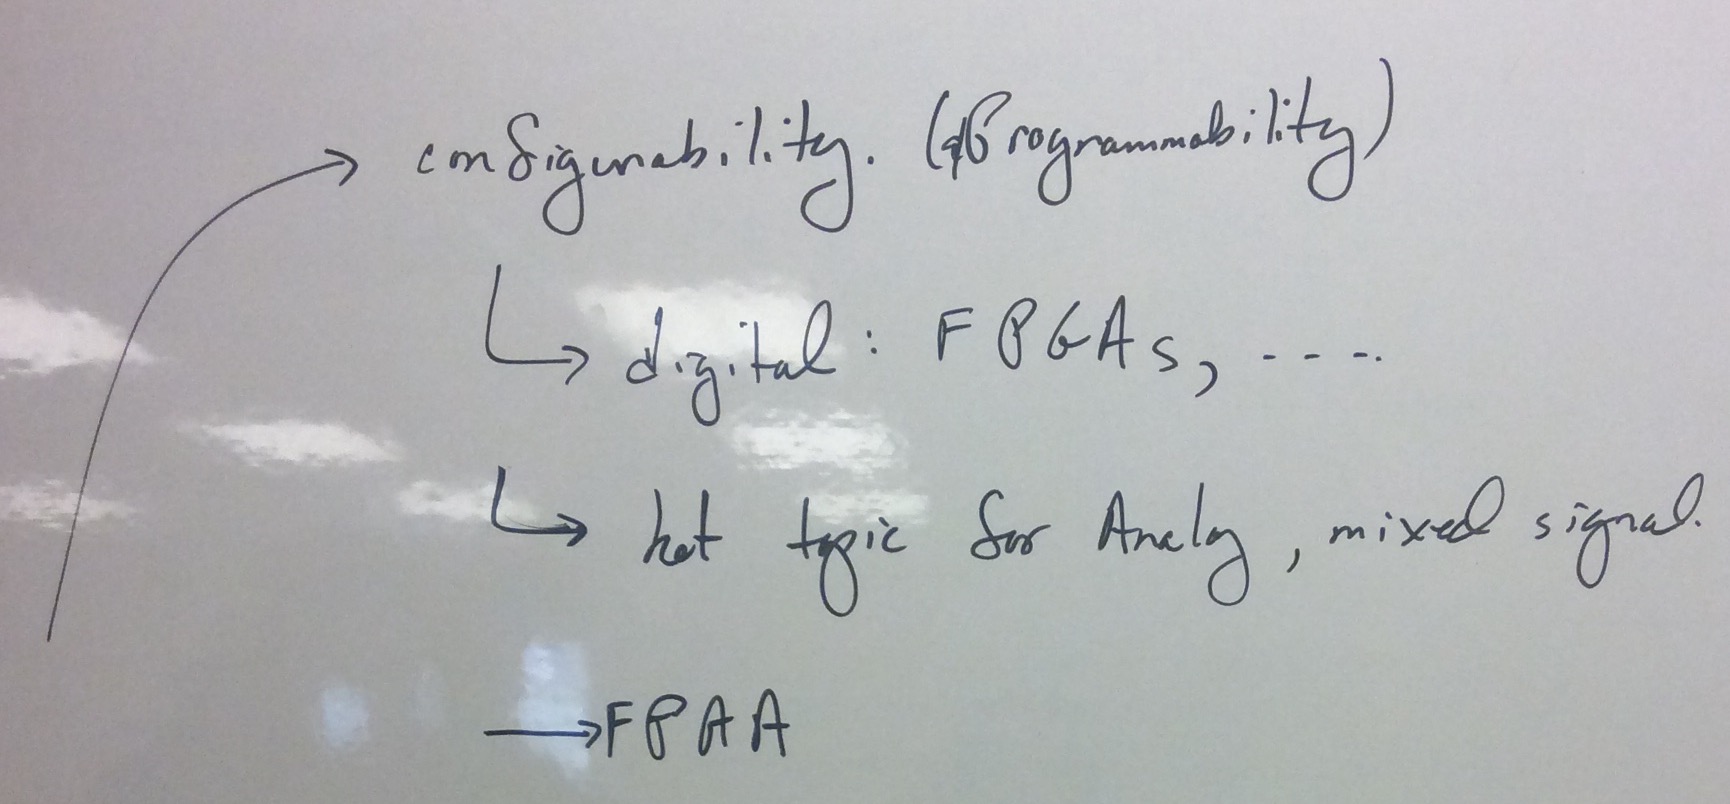 → configurability. (Programmability)
↳ digital : FPGAs, ----.
↳ hot topic for Analog, mixed signal.
→ FPAA